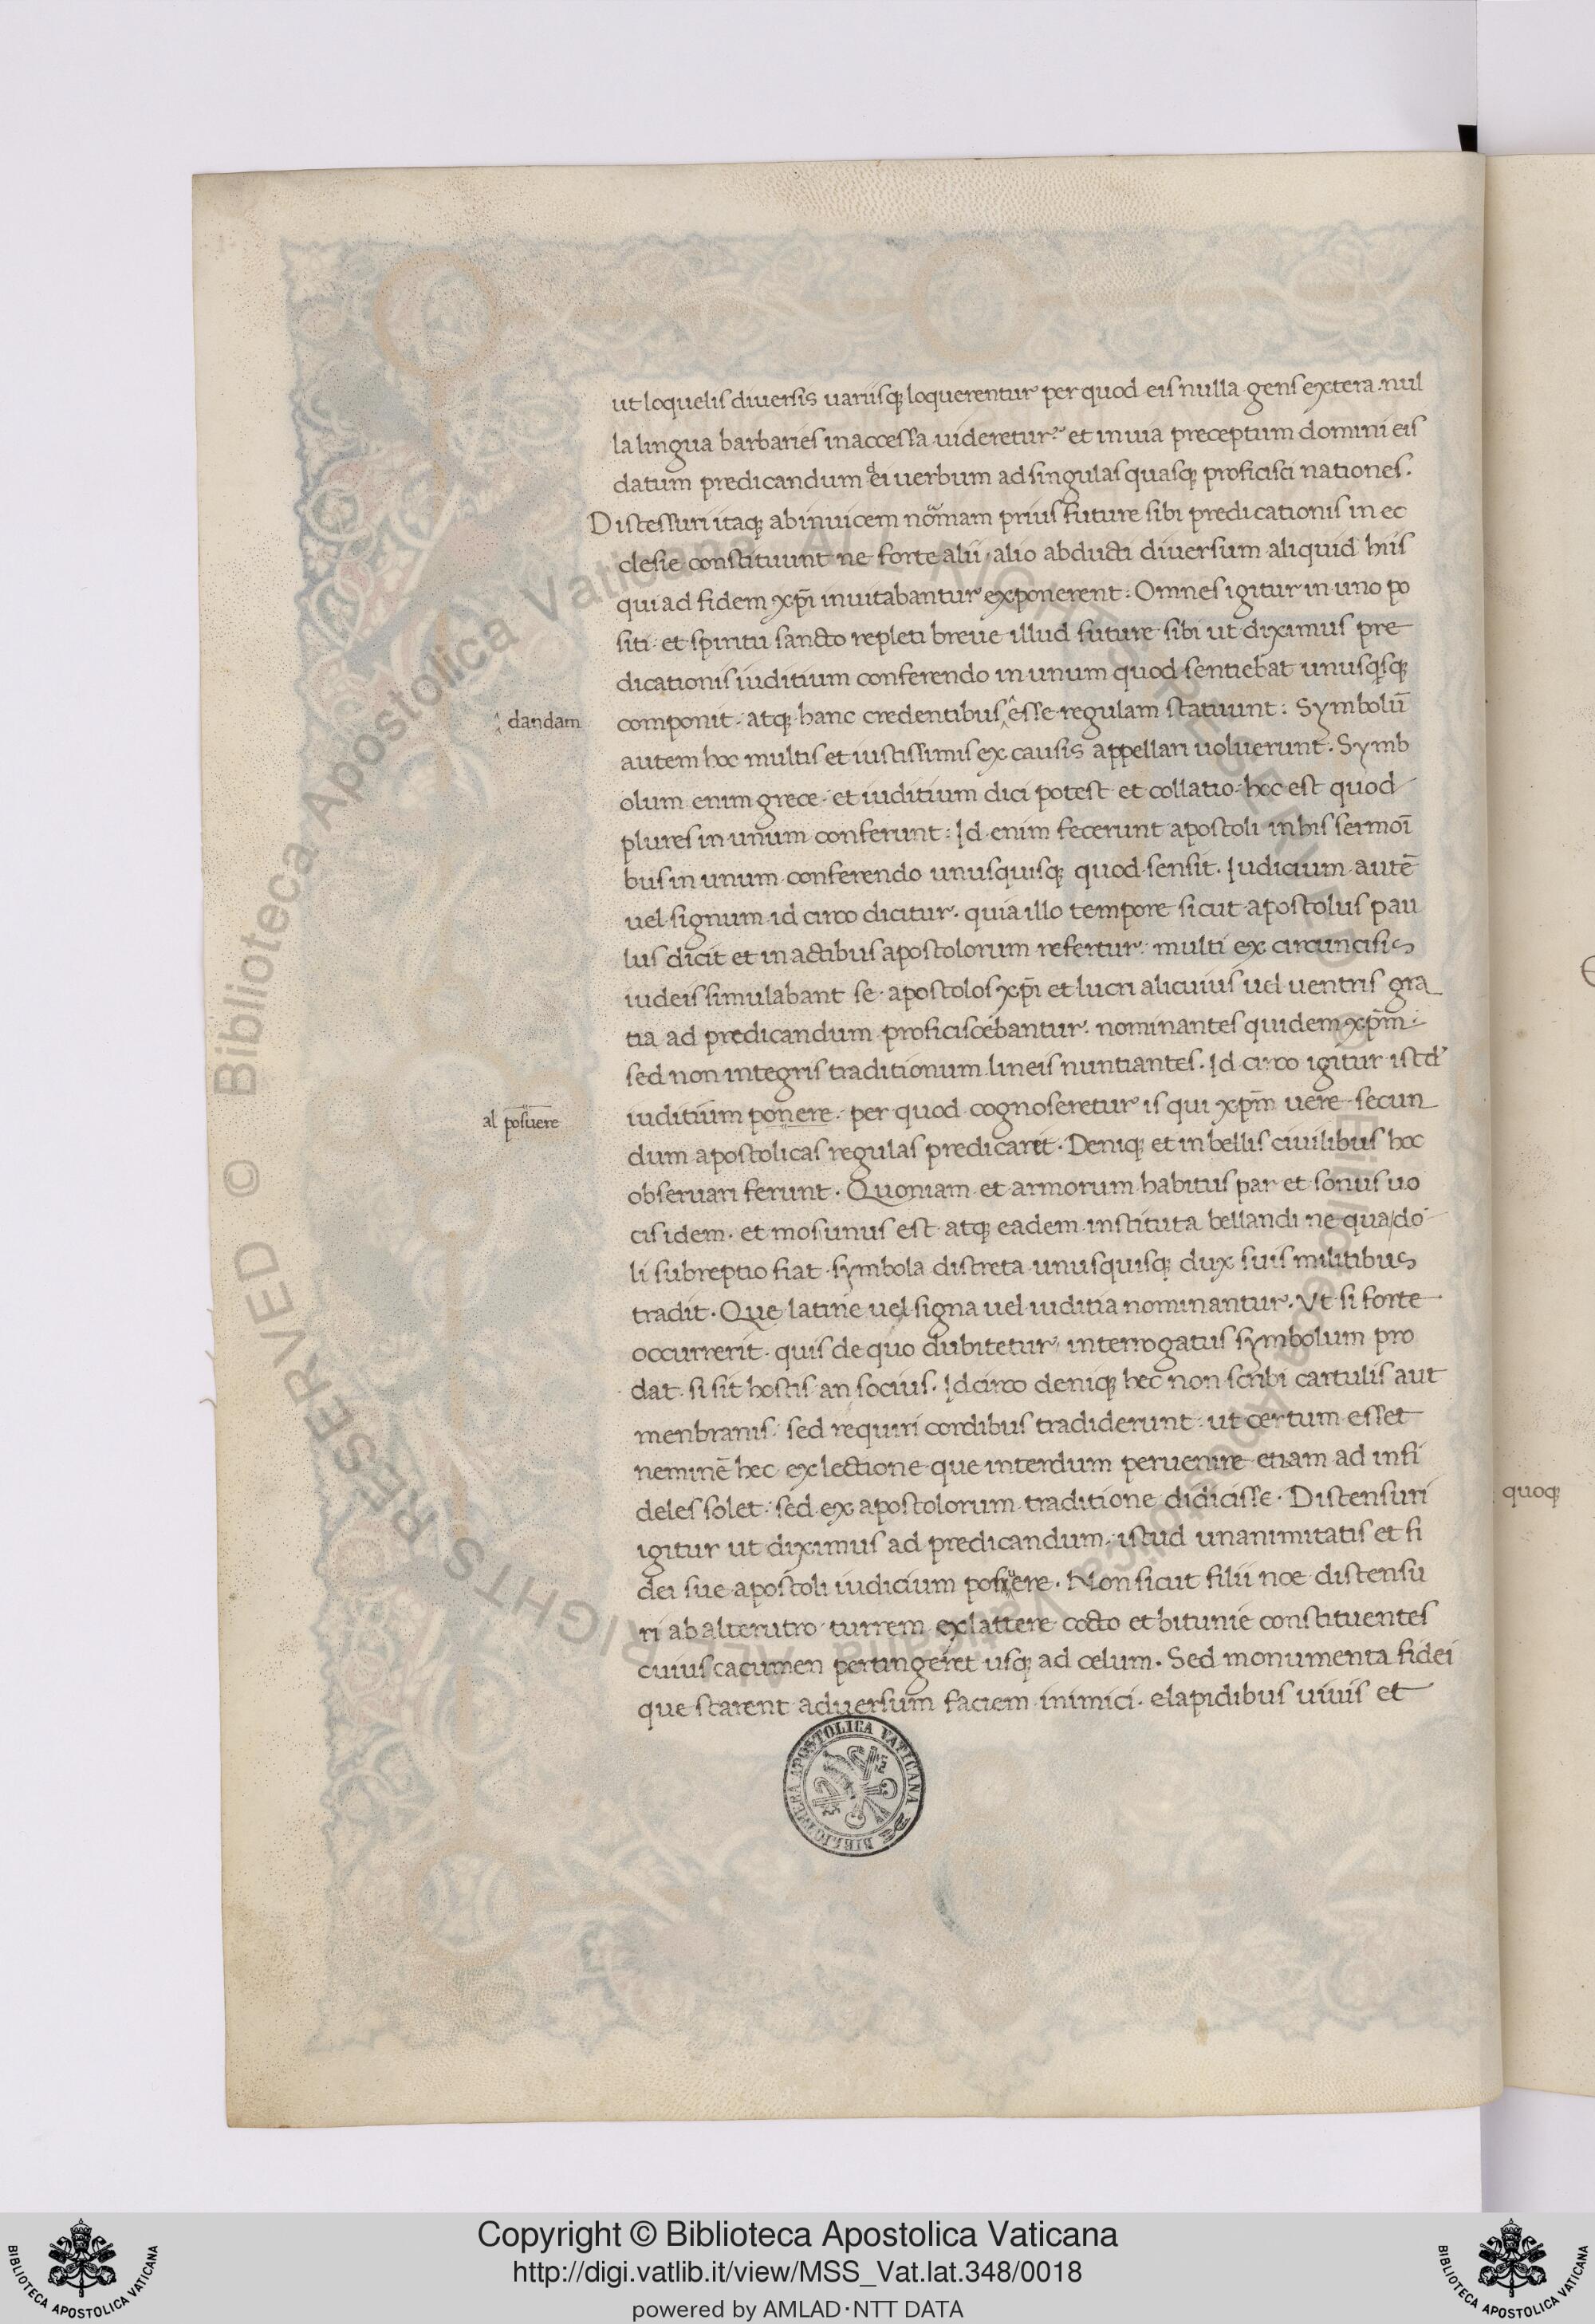 ut loquelis diversis variisq; loquerentur per quod eis nulla gens extera. nul
la lingua barbaries inaccessa uideretur. et in uia preceptum domini eis
datum predicandum dei uerbum ad singulas quasq; proficisci nationes.
Discessuri itaq; ab inuicem normam prius future sibi predicationis in ec
clesie constituunt ne forte alii. alio abducti diversum aliquid hiis
qui ad fidem xp̄i inuitabantur exponerent. Omnes igitur in uno po
siti. et spiritu sancto repleti breue illud future sibi ut diximus pre
dicationis iuditium conferendo in unum quod sentiebat unusq̓sq;
dandam
componit. atq; hanc credentibus esse regulam statuunt: Symbolū
autem hoc multis et iustissimis ex causis appellari uoluerunt. Symb
olum enim grece. et iuditium dici potest et collatio. hoc est quod
plures in unum conferunt: Id enim fecerunt apostoli in his sermoī
bus in unum conferendo unusquisq; quod sensit. Iudicium autē
uel signum id circo dicitur. quia illo tempore sicut apostolus pau
lus dicit et in actibus apostolorum refertur. multi ex circuncisis
iudeis simulabant se. apostolos xp̄i et lucri alicuius uel uentris gra
tia ad predicandum proficiscebantur. nominantes quidem xp̄m:
sed non integris traditionum lineis nuntiantes. Id circo igitur istd'
al posuere
iuditium ponere. per quod cognoseretur is qui xp̄m uere secun
dum apostolicas regulas predicaret. Deniq; et in bellis ciuilibus hoc
obseruari ferunt. Quoniam et armorum habitus par et sonus uo
cis idem. et mos unus est atq; eadem instituta bellandi ne qua do
li subreptio fiat. symbola discreta unusquisq; dux suis militibus
tradit. Que latine uel signa uel iuditia nominantur. Vt si forte
occurrerit. quis de quo dubitetur, interrogatus symbolum pro
dat. si sit hostis an socius. Idcirco deniq; hec non scribi cartulis aut
menbranis. sed requiri cordibus tradiderunt. ut certum esset
neminē hec ex lectione que interdum peruenire etiam ad infi
deles solet. sed ex apostolorum traditione didicisse. Discensuri
igitur ut diximus ad predicandum. istud unanimitatis et fi
dei sue apostoli iudicium posuere. Non sicut filii noe discensu
ri ab alterutro. turrem ex lattere cocto et bitunie constituentes
cuius cacumen pertingeret usq; ad celum. Sed monumenta fidei
que starent aduersum faciem inimici. e lapidibus uiuis et
quoq;
BIBLIOTECA APOSTOLICA VATICANA
Copyright © Biblioteca Apostolica Vaticana
http://digi.vatlib.it/view/MSS_Vat.lat.348/0018
powered by AMLAD·NTT DATA
BIBLIOTECA APOSTOLICA VATICANA
BIBLIOTECA APOSTOLICA VATICANA